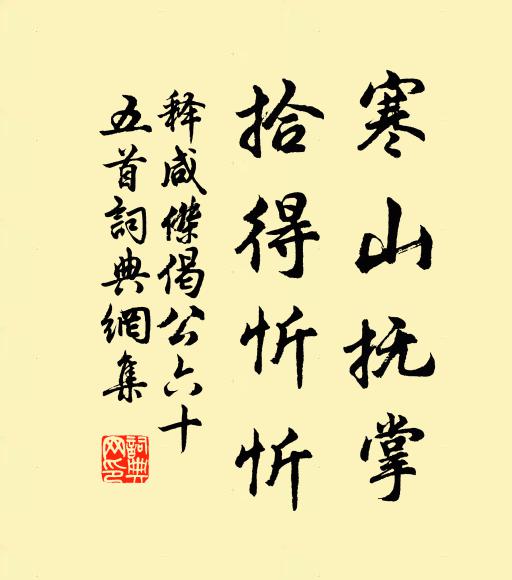 寒山抚掌
拾得忻忻
释咸傑偈公六十
五首詞典網集
詞典网印